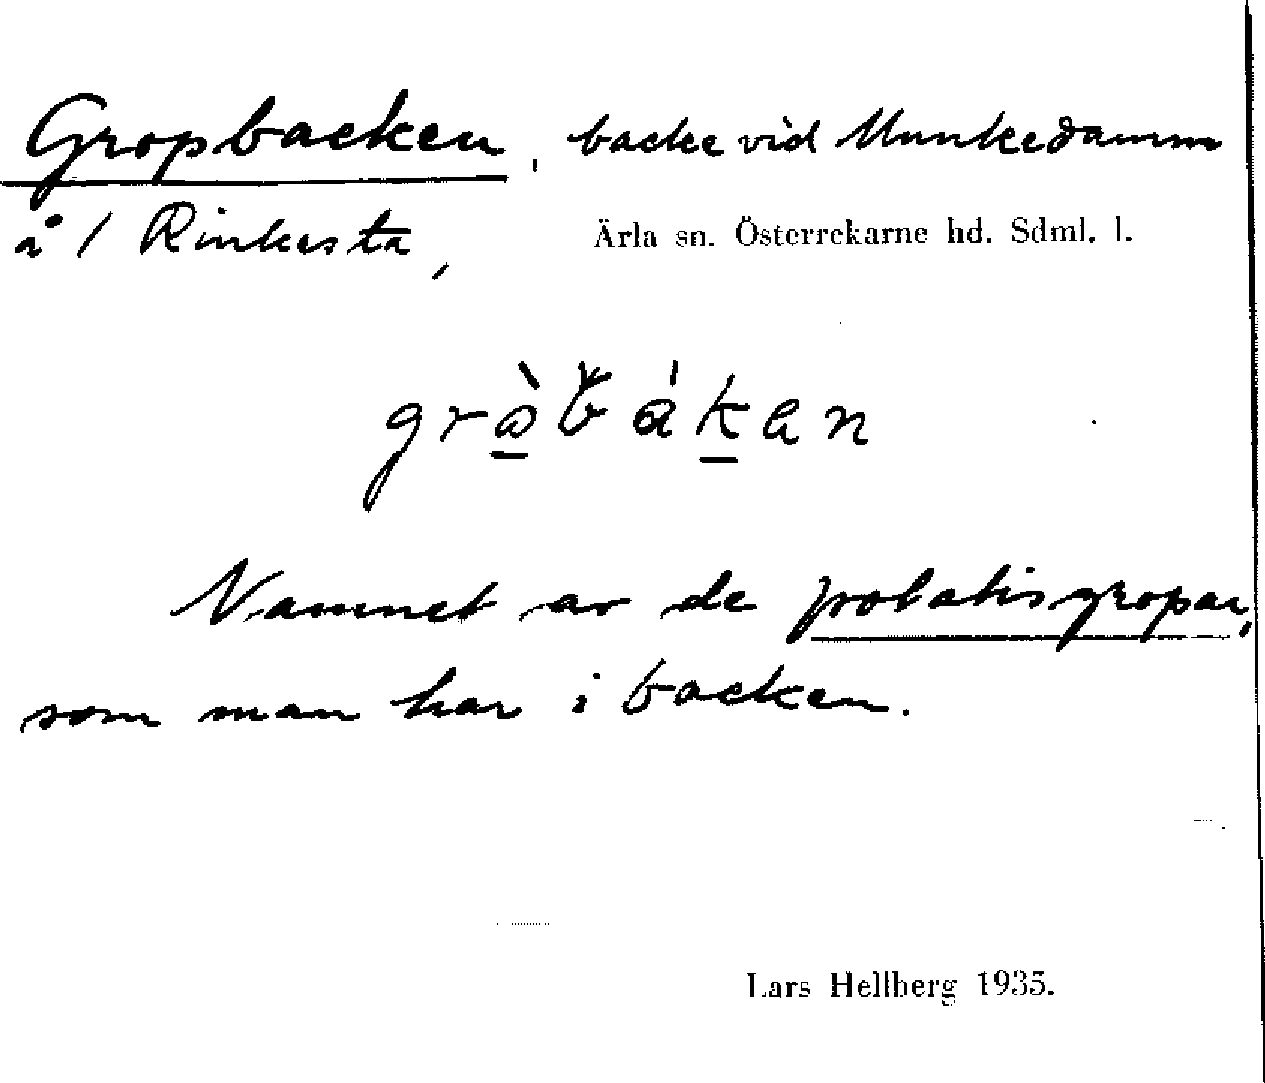 Gropbacken, backe vid Munkedamm
å / Rinkesta, Ärla sn. Österrekarne hd. Sdml. l.
Namnet av de potatisgropar,
som man har i backen.
Lars Hellberg 1935.